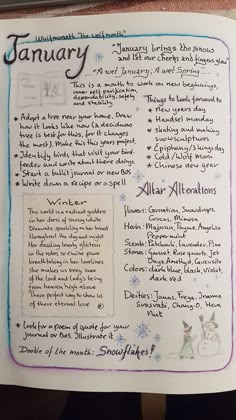 Wulfmonath "the wolf month"
January
"January brings the snow
and let our cheeks and fingers glow"
"A wet January; A wet Spring...."
This is a month to work on new beginnings,
inner self purification,
dependability, safety
and stability
Things to look forward to
* New years day
* Handsel monday
* Skating and making
snow sculptures
* Epiphany/Skings day
* Cold/Wolf Moon
* Chinese new year
• Adopt a tree near your home, Draw
how it looks like now (a deciduous
tree is best for this, for it changes
the most). Make this this years project.
• Identify birds, that visit your bird
feeder and write about there doings.
• Start a bullit journal or new BOS
• Write down a recipe or a spell
Winter
The world is a radient goddess
in her dress of snowy white
Diamonds sparkling in her breast
throughout the day and night
Her dazzling beauty glistens
in the robes so entire pure
breath taking in her loveliness
She makes us very sure
of the Lord and Lady's being
from heaven high above
These perfect way to show us
of there eternal love
Altar Alterations
Flowers: Carnation, Snowdrops,
Crocus, Mimosa
Herbs: Marjoram, Thyme, Angelica
Peppermint
Scents: Patchouli, lavender, Pine
Stones: Garnet, Rose quartz, Jet
Onyx, Amethyst,
Colors: dark blue, black, Violet,
dark red
Deities: Janus, Freya, Inanna
Sarasvati, Chang-O, Hera
Nut
• Look for a poem of quote for your
journal or BOS, Illustrate it
Doodle of the month: Snowflakes!